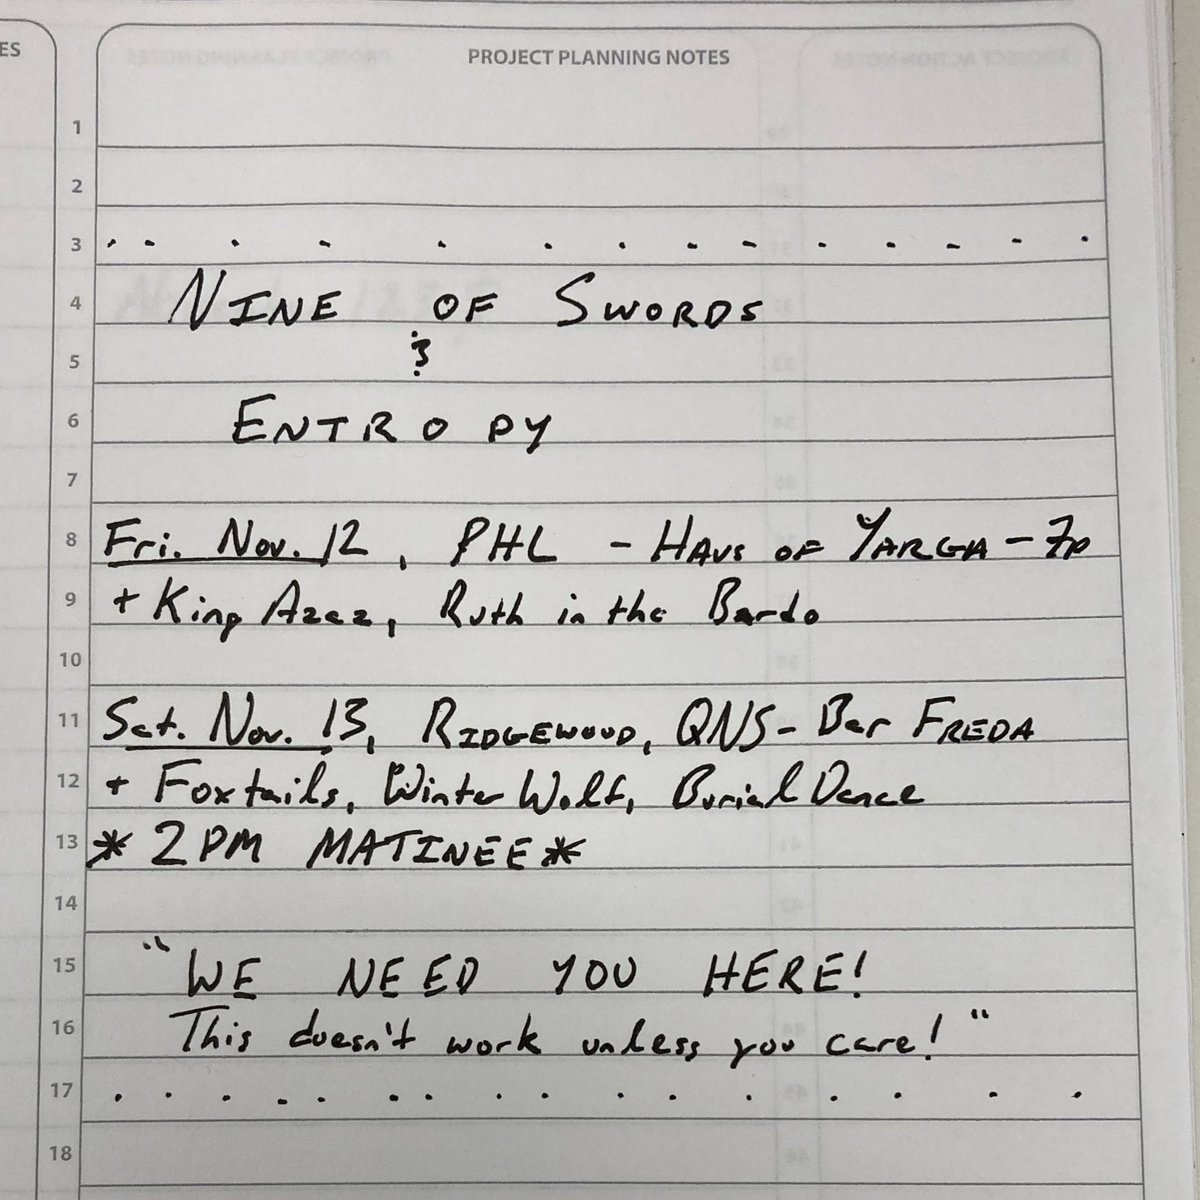 ES
PROJECT PLANNING NOTES
1
2
3 . . . . . . . . . . . . . .
4 NINE OF SWORDS
5 &
6 ENTROPY
7
8 Fri. Nov. 12, PHL - HAUS OF YARGA - 7p
9 + King Azaz, Ruth in the Bardo
10
11 Sat. Nov. 13, RIDGEWOOD, QNS - Bar FREDA
12 + Foxtails, Winter Wolf, Burial Dance
13 * 2PM MATINEE *
14
15 "WE NEED YOU HERE!
16 This doesn't work unless you care!"
17 . . . . . . . . . . . . . . .
18